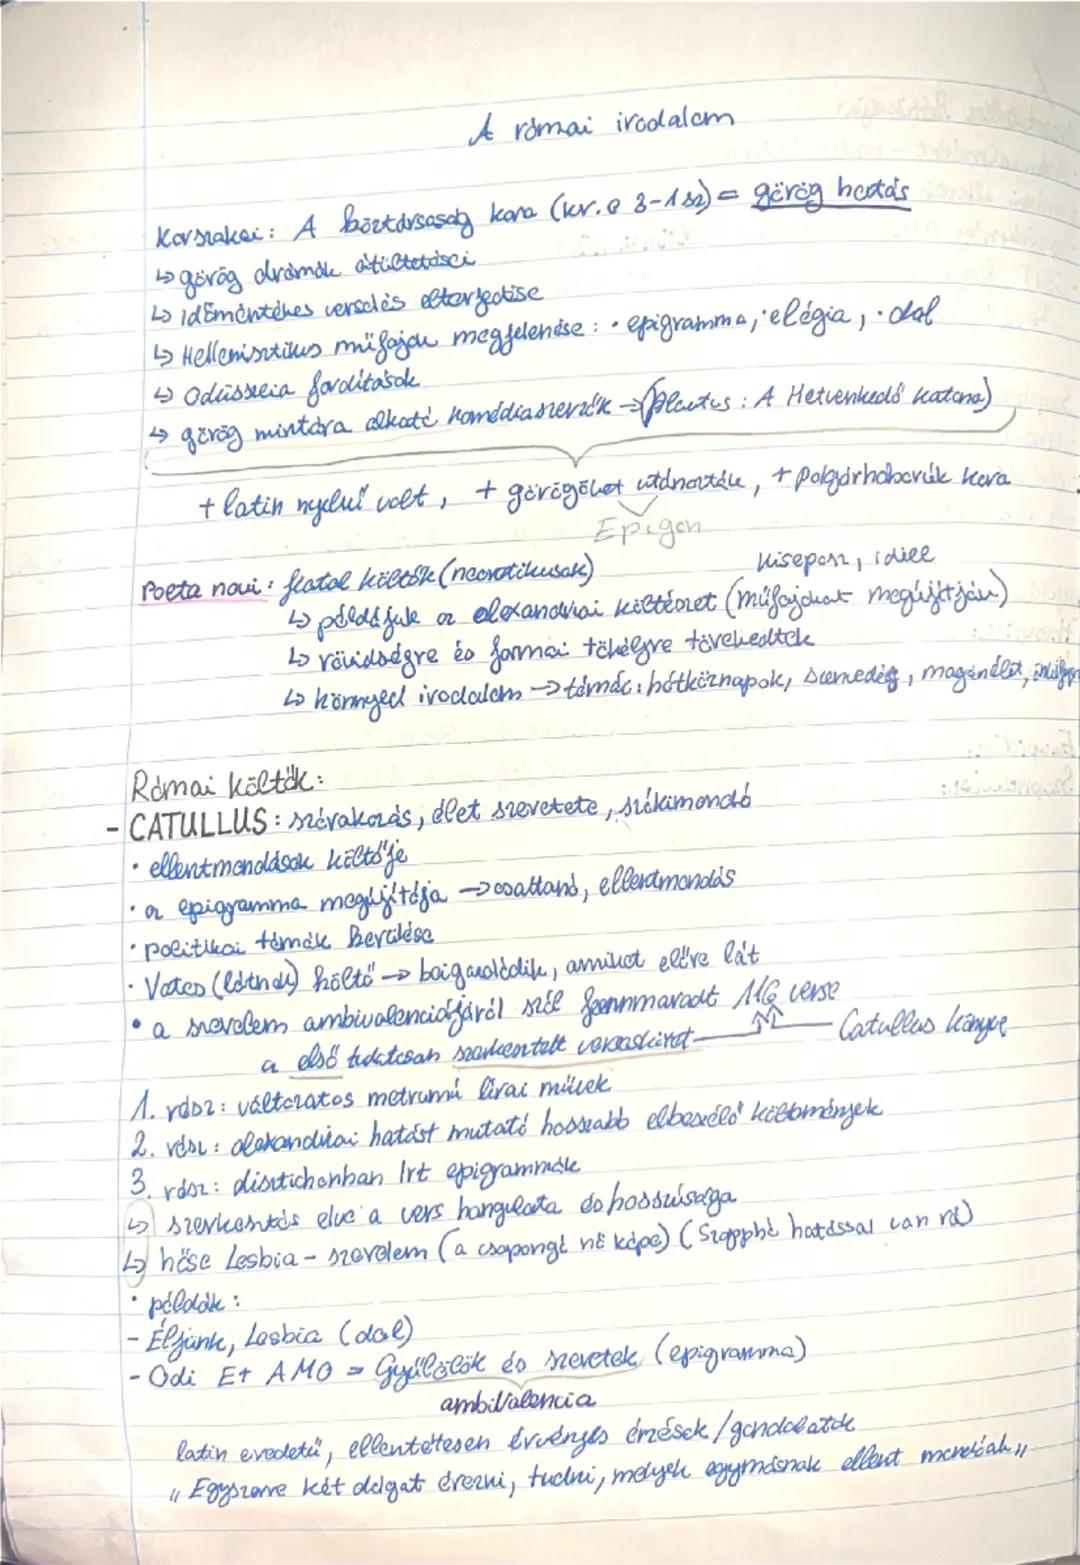 A római irodalom
Korszakai: A köztársaság kora (kr.e 3-1 sz) = görög hatás
↳ görög drámák átültetései
↳ időmértékes verselés elterjedése
↳ Hellenisztikus műfajok megjelenése: · epigramma, · elégia, · dal
↳ Odüsszeia fordítások
↳ görög mintára alkotó komédiaszerzők → (Plautus: A Hetvenkedő katona)
+ latin nyelvű volt, + görögöket utánozták, + Polgárháborúk kora
Epigon
Poeta novi: fiatal költők (neoretikusak)
kiseposz, idill
↳ példájuk az alexandriai költészet (műfajokat megújítják)
↳ rövidségre és formai tökélyre törekedtek
↳ könnyed irodalom → témái: hétköznapok, szenvedély, magánélet,
Római költők:
- CATULLUS: szórakozás, élet szeretete, szókimondó
· ellentmondások költője
· az epigramma megújítója → csattanó, ellentmondás
· politikai témák kerülése
· Vates (látnok) költő → baigazolódik, amiket előre lát
· a szerelem ambivalenciájáról szól fennmaradt 116 verse
az első tudatosan szerkesztett verseskötet Catullus könyve
1. rész: változatos metrumú lírai művek
2. rész: alexandriai hatást mutató hosszabb elbeszélő költemények
3. rész: disztichonban írt epigrammák
↳ szerkesztés elve: a vers hangulata és hosszúsága
↳ hőse Lesbia - szerelem (a csapongó nő képe) (Szapphó hatással van rá)
· példák:
- Éljünk, Lesbia (dal)
- Odi Et AMO = Gyűlölök és szeretek (epigramma)
ambivalencia
latin eredetű, ellentétesen érvényes érzések/gondolatok
„Egyszerre két dolgat érezni, tudni, melyek egymásnak ellent mondóak„